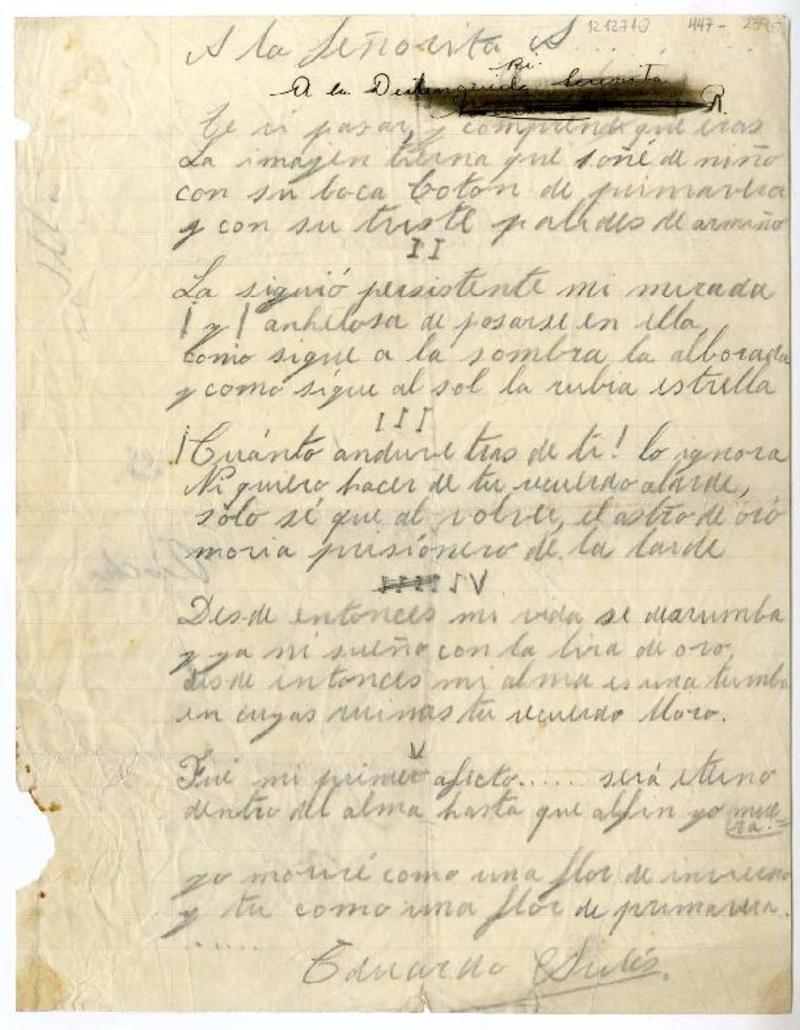 121271.0 447-
A la Señorita A.....
A la Distinguida Srita R.
Te vi pasar, y comprendi que eras
La imajen tierna que soñé de niño
con su boca boton de primavera
y con su triste palides de armiño
II
La siguió persistente mi mirada
¡ y ¡ anhelosa de posarse en ella
como sigue a la sombra la alborada
y como sigue al sol la rubia estrella
III
¡Cuánto anduve tras de ti! lo ignora
Ni quiero hacer de tu recuerdo alarde,
solo sé que al volver, el astro de oro
moria prisionero de la tarde
IV
Desde entonces mi vida se derrumba
y ya ni sueño con la lira de oro,
desde entonces mi alma es una tumba
en cuyas ruinas tu recuerdo lloro.
V
Fué mi primer afecto..... será eterno
dentro del alma hasta que alfin yo mue
ra.=
yo moriré como una flor de invierno
y tu como una flor de primavera.
......
Eduardo